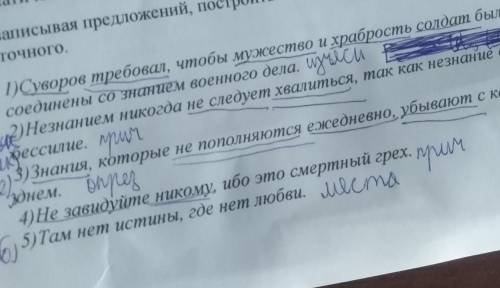 записывая предложений,
точного.
1)Суворов требовал, чтобы мужество и храбрость солдат
соединены со знанием военного дела. изъясн
2)Незнанием никогда не следует хвалиться, так как незнание
бессилие. прич
3)Знания, которые не пополняются ежедневно, убывают с
днем. опрез
4)Не завидуйте никому, ибо это смертный грех. прич
б) 5)Там нет истины, где нет любви. места